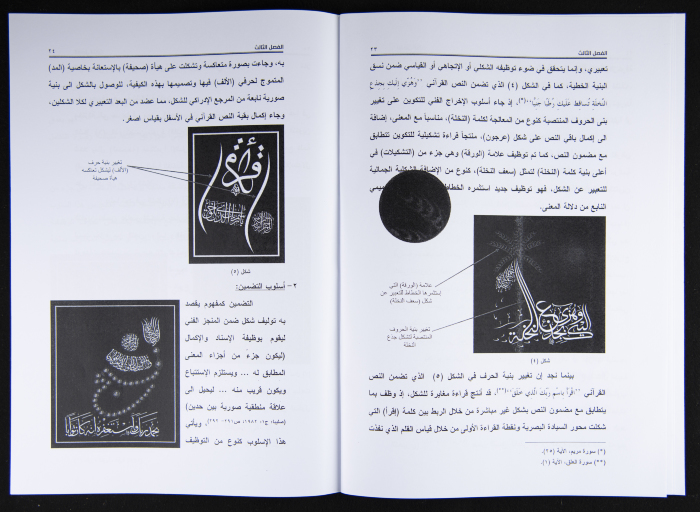 الفصل الثالث
٢٣
تعبيري، وإنما يتحقق في ضوء توظيفه الشكلي أو الإتجاهي أو القياسي ضمن نسق
البنية الخطية، كما في الشكل (٤) الذي تضمن النص القرآني "وَهُزِّي إِلَيْكِ بِجِذْعِ
النَّخْلَةِ تُسَاقِطْ عَلَيْكِ رُطَبًا جَنِيًّا"(*). إذ جاء أسلوب الإخراج الفني للتكوين على تغيير
بنى الحروف المنتصبة كنوع من المعالجة لكلمة (النخلة)، مناسباً مع المعنى، إضافة
الى إكمال باقي النص على شكل (عرجون)، منتجاً قراءة تشكيلية للتكوين تتطابق
مع مضمون النص، كما تم توظيف علامة (الورقة) وهي جزء من (التشكيلات) في
أعلى بنية كلمة (النخلة) لتمثل (سعف النخلة)، كنوع من الإضافة الشكلية الجمالية
للتعبير عن الشكل، فهو توظيف جديد استثمره الخطاط
النابع من دلالة المعنى.
علامة (الورقة) التي
إستثمرها الخطاط للتعبير عن
شكل (سعف النخلة)
تغيير بنية الحروف
المنتصبة لتشكل جذع
النخلة
شكل (٤)
بينما نجد إن تغيير بنية الحرف في الشكل (٥) الذي تضمن النص
القرآني "اقْرَأْ بِاسْمِ رَبِّكَ الَّذِي خَلَقَ"(**). قد أنتج قراءة مغايرة للشكل، إذ وظف بما
يتطابق مع مضمون النص بشكل غير مباشر من خلال الربط بين كلمة (إقرأ) التي
شكلت محور السيادة البصرية ونقطة القراءة الأولى من خلال قياس القلم الذي نفذت
(*) سورة مريم، الآية (٢٥).
(**) سورة العلق، الآية (١).
الفصل الثالث
٢٤
به، وجاءت بصورة متعاكسة وتشكلت على هيأة (صحيفة) بالإستعانة بخاصية (المد)
المتموج لحرفي (الألف) فيها وتصميمها بهذه الكيفية، للوصول بالشكل الى بنية
صورية نابعة من المرجع الإدراكي للشكل، مما عضد من البعد التعبيري لكلا الشكلين،
وجاء إكمال بقية النص القرآني في الأسفل بقياس اصغر.
تغيير بنية حرف
(الألف) ليشكل تعاكسه
هيأة صحيفة
شكل (٥)
٢- أسلوب التضمين:
التضمين كمفهوم يقصد
به توليف شكل ضمن المنجز الفني
ليقوم بوظيفة الإسناد والإكمال
(ليكون جزء من أجزاء المعنى
المطابق له ... ويستلزم الإستتباع
ويكون قريب منه ... ليحيل الى
علاقة منطقية صورية بين حدين)
(صليبا، ج١، ١٩٨٢، ص٢٩١-٢٩٢). ويأتي
هذا الإسلوب كنوع من التوظيف